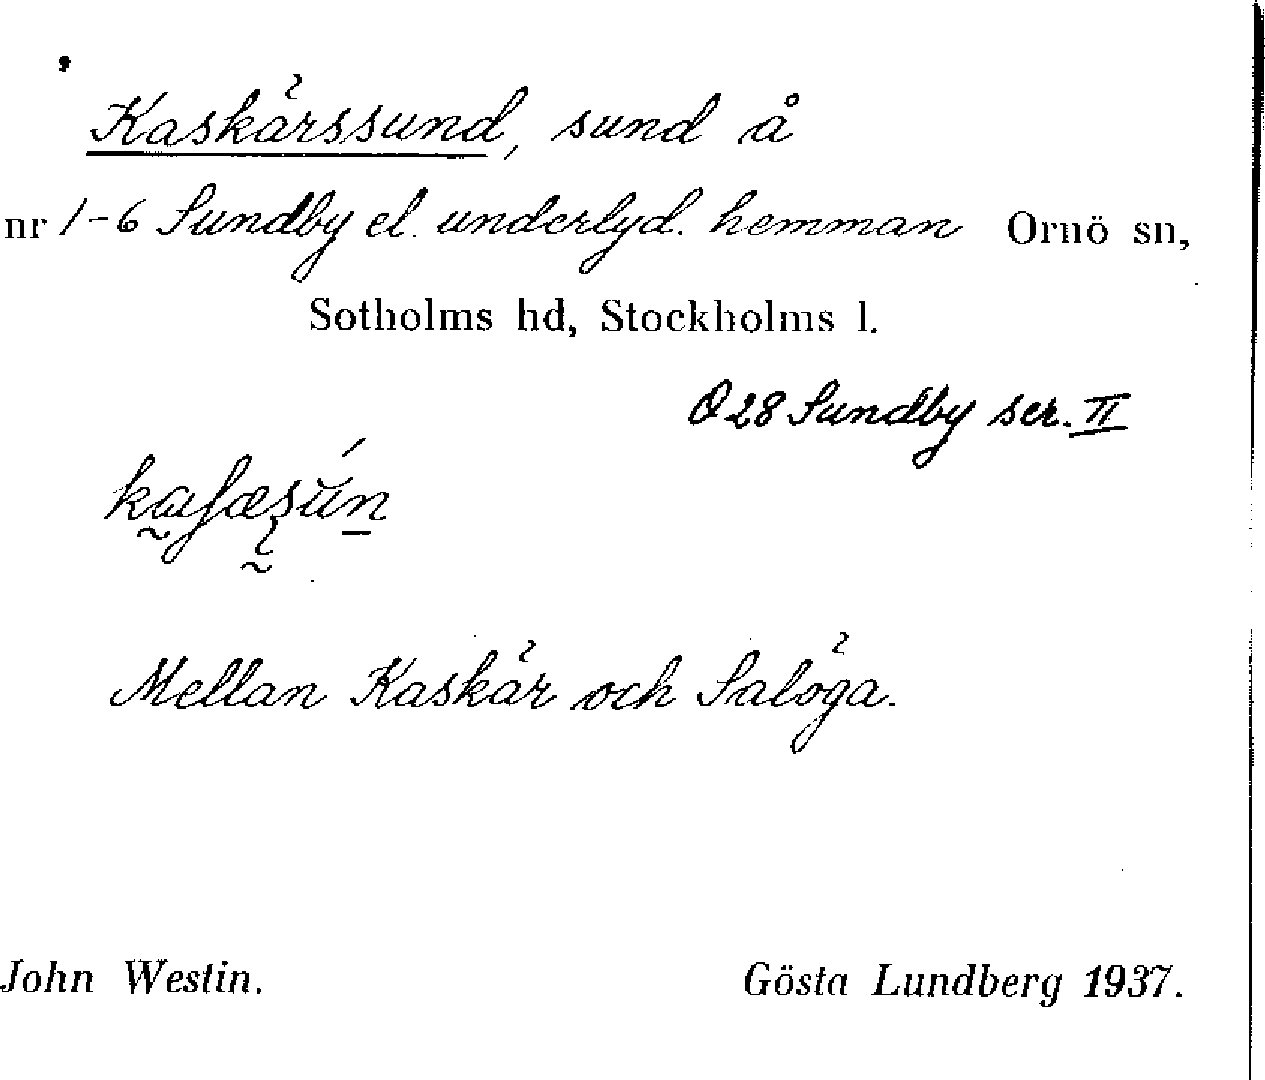 Kaskärssund, sund å
nr 1-6 Sundby el. underlyd. hemman Ornö sn,
Sotholms hd, Stockholms l.
Ö 28 Sundby ser. II
Mellan Kaskär och Salöga.
John Westin. Gösta Lundberg 1937.